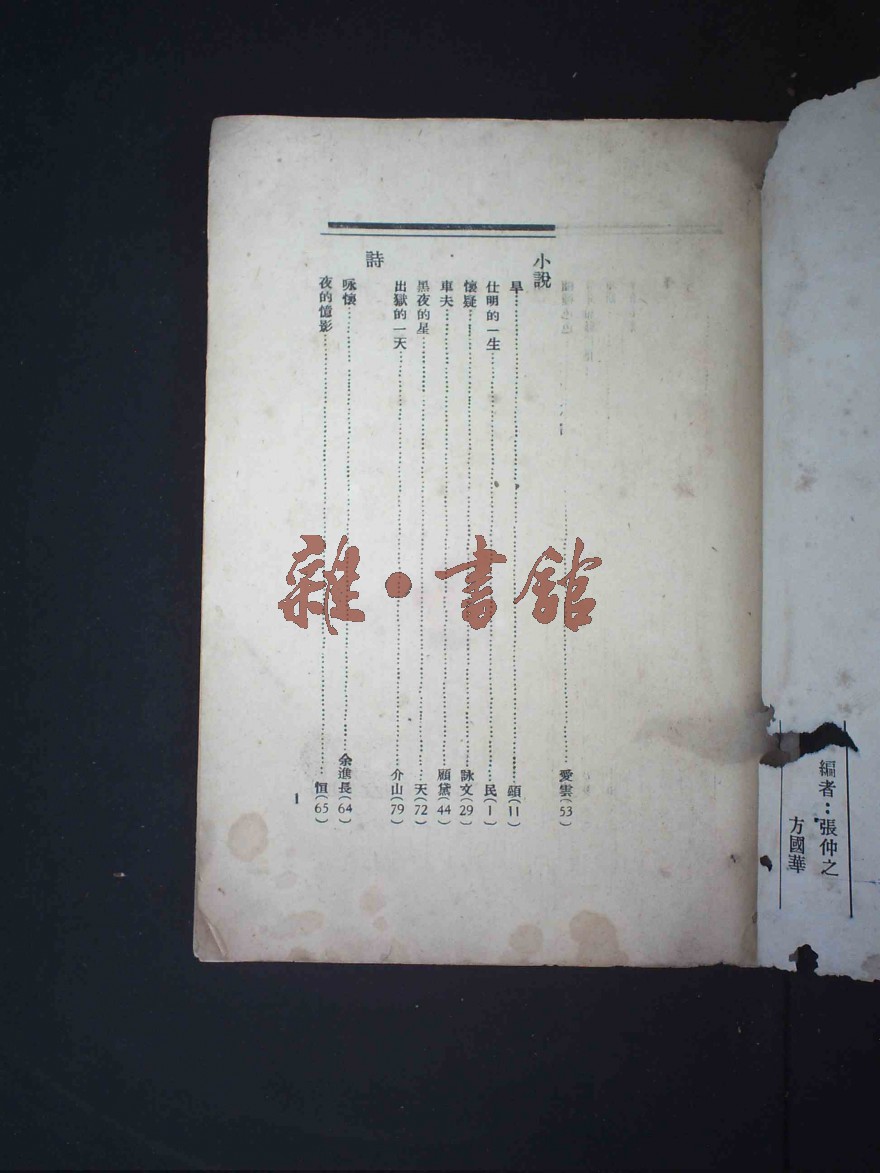 編者：張仲之
方國華
愛雲(53)
小說
旱……頡(11)
仕明的一生……民(1)
懷疑……詠文(29)
車夫……顧黛(44)
黑夜的星……天(72)
出獄的一天……介山(79)
詩
咏懷……余進長(64)
夜的憶影……恒(65)
1
雜·書館